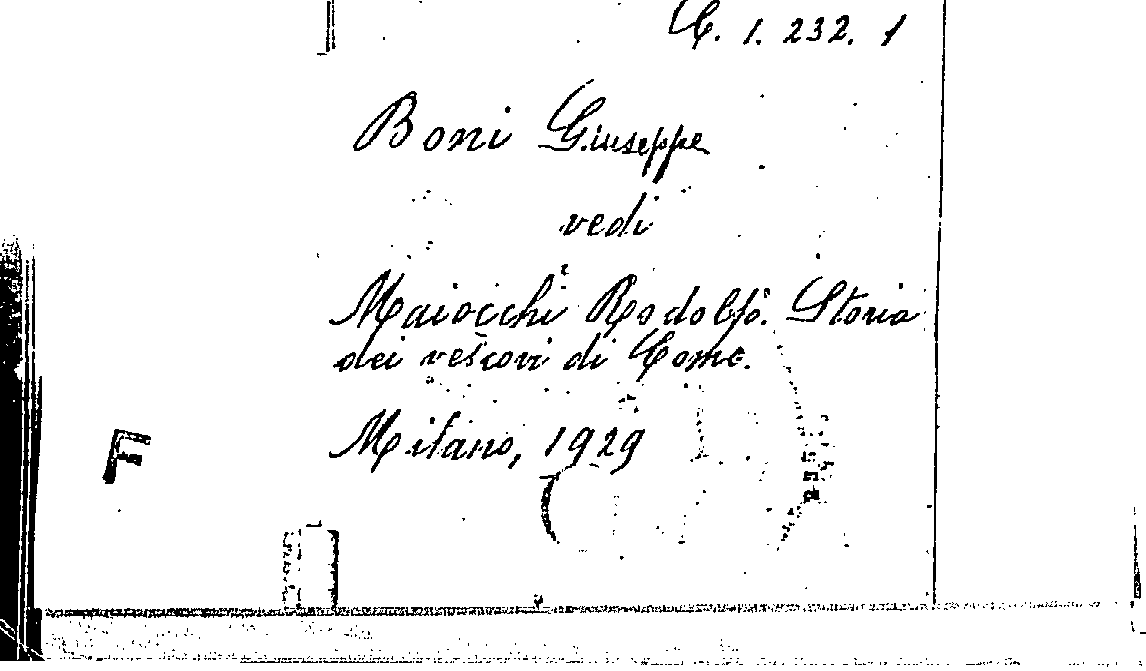 C. 1. 232. 1
Boni Giuseppe
vedi
Maiocchi Rodolfo. Storia
dei vescovi di Como.
Milano, 1929
F